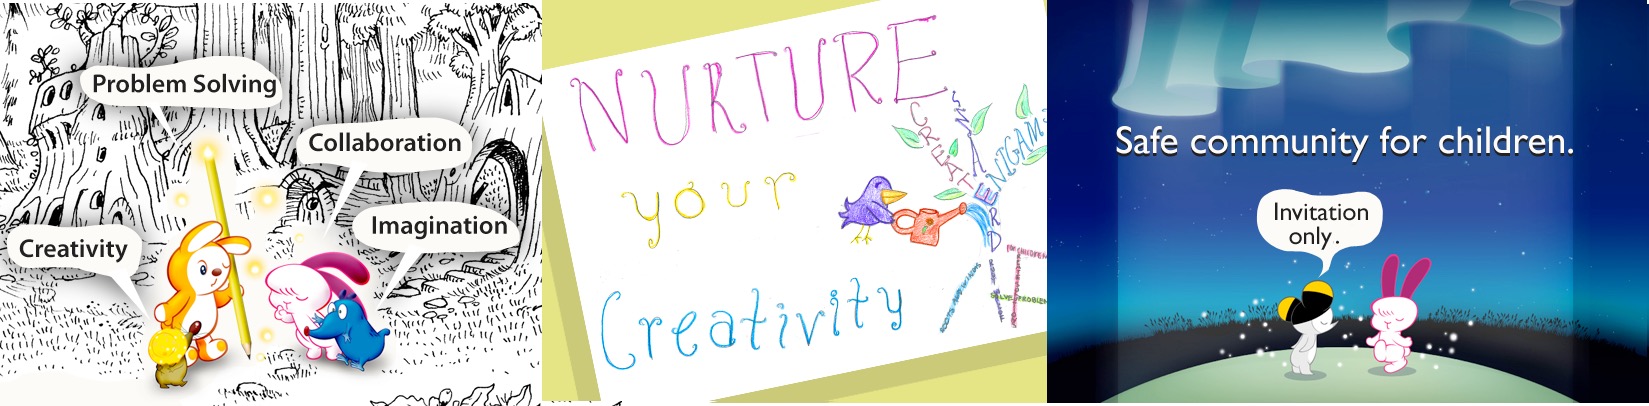 Problem Solving
Collaboration
Imagination
Creativity
NURTURE
your
Creativity
CREATE
ENIGAM
Safe community for children.
Invitation
only.